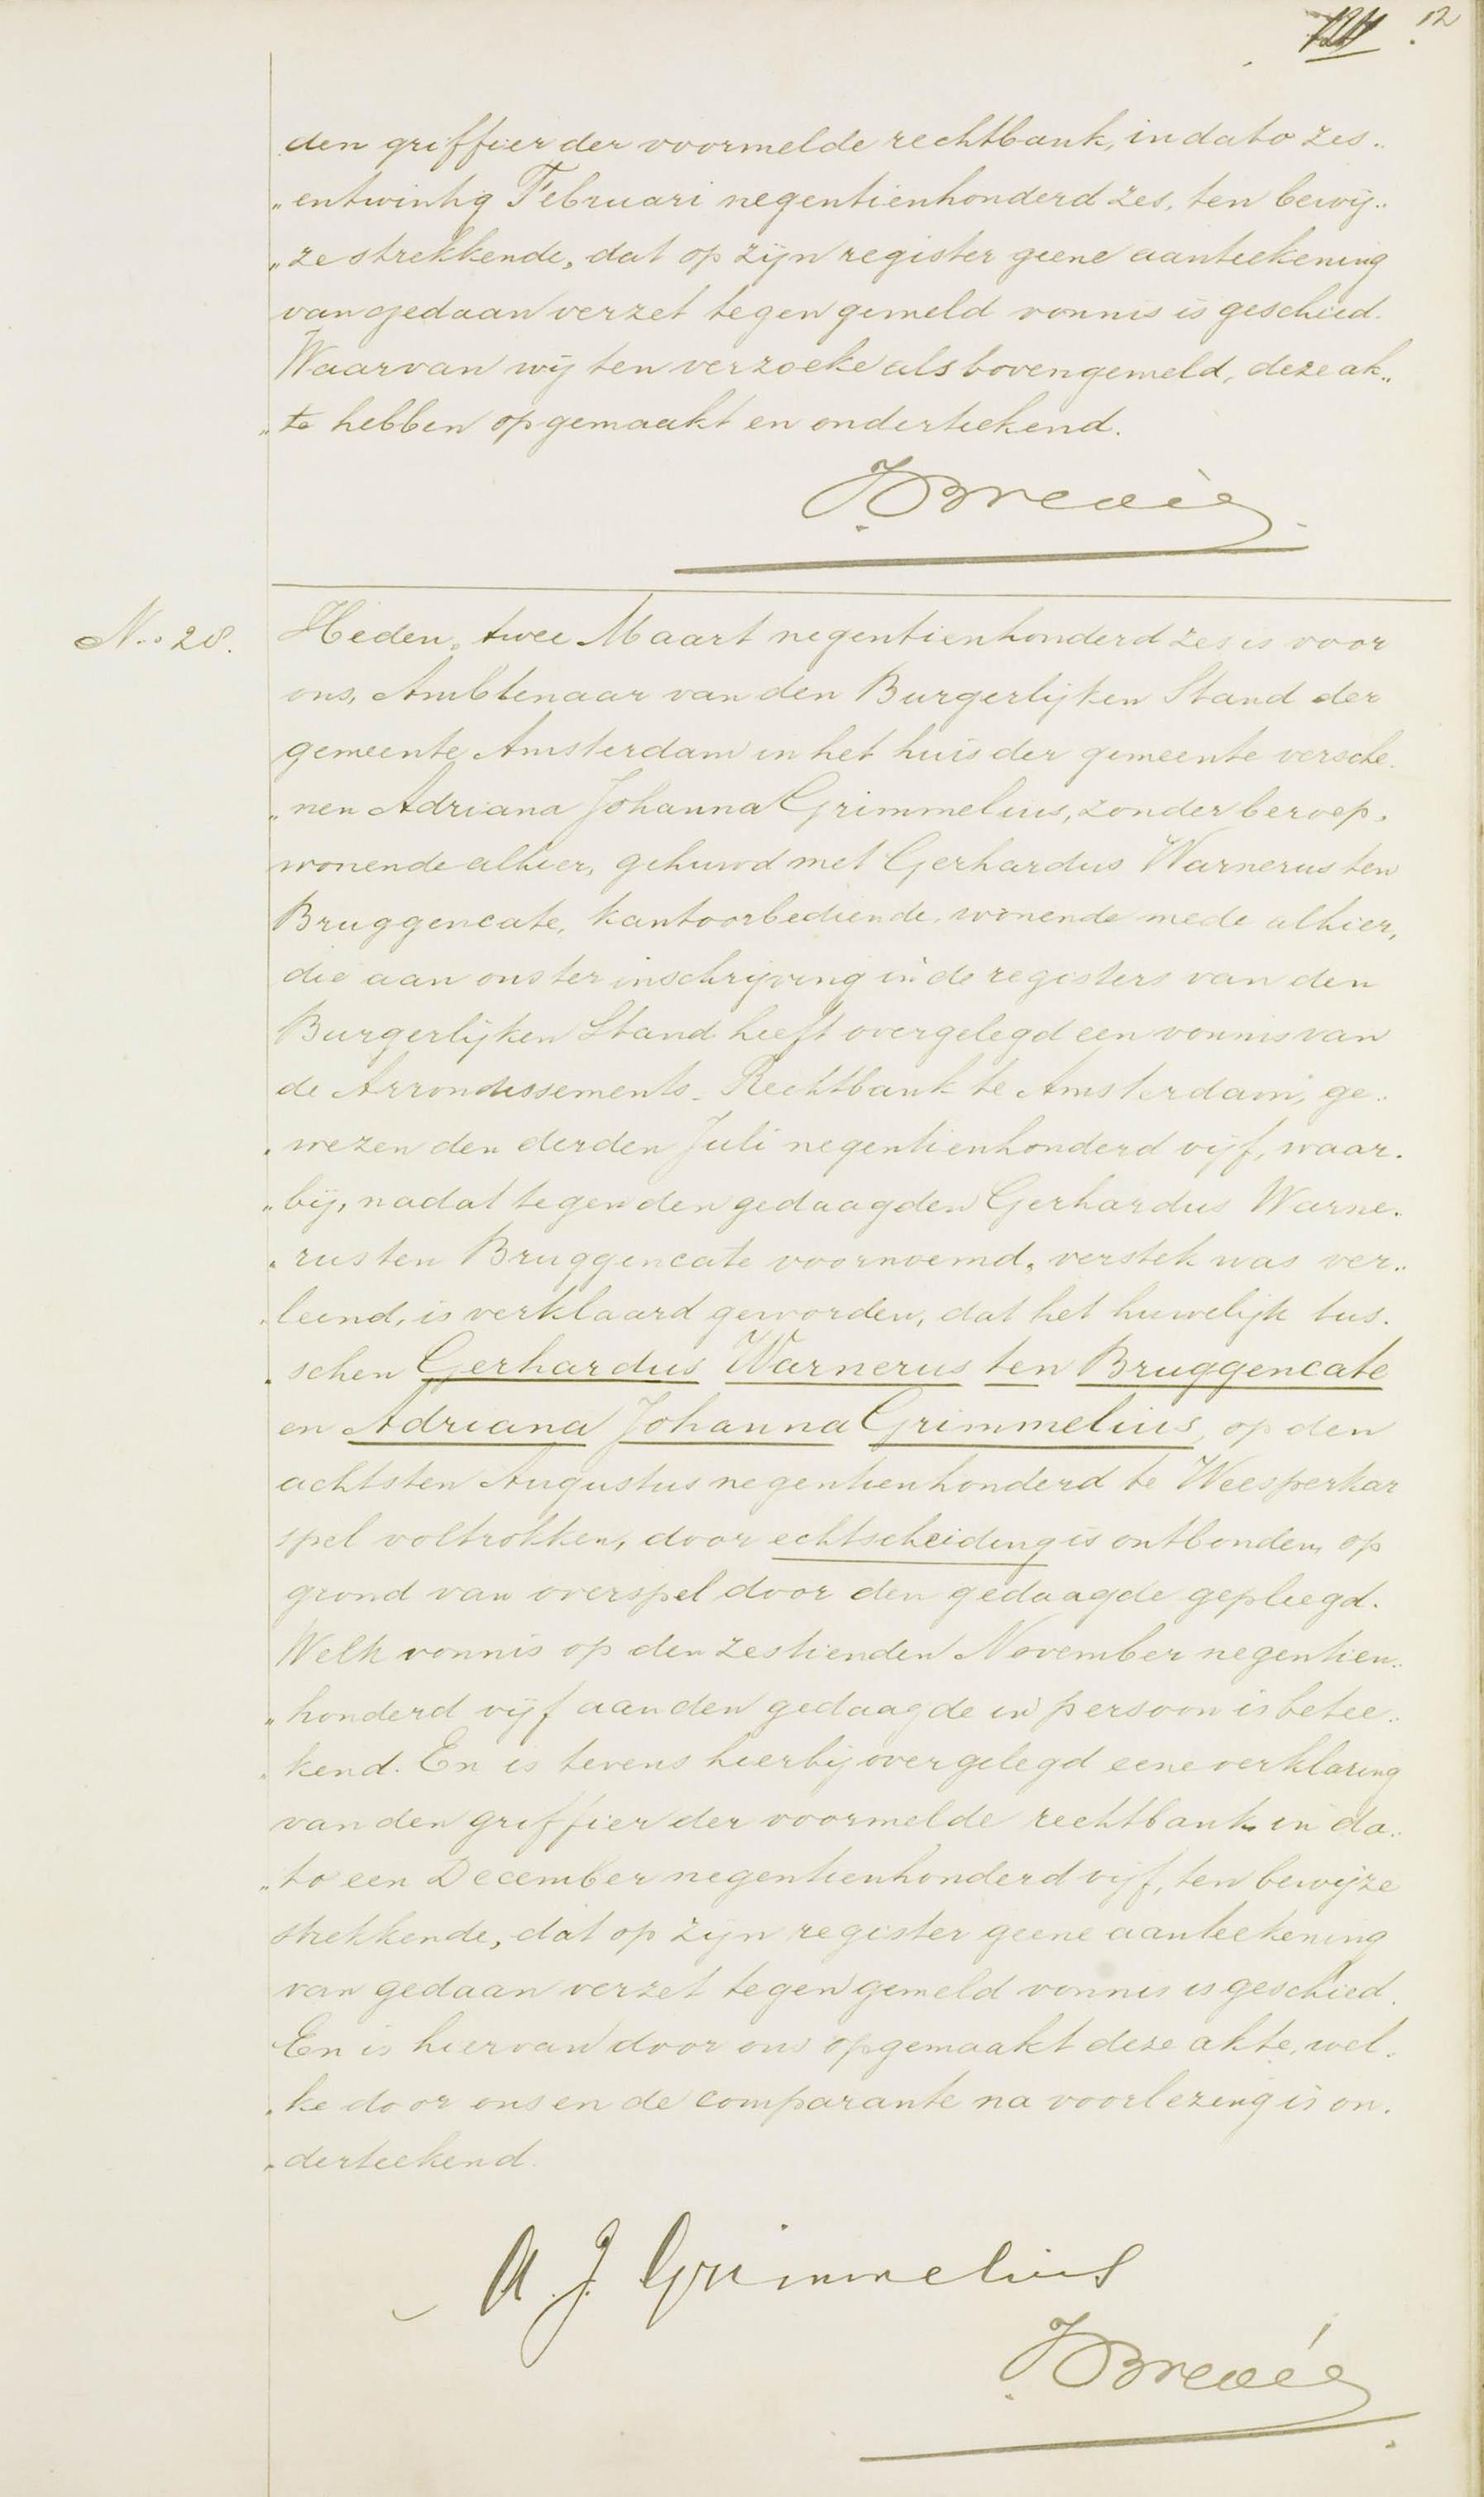 12
den griffier der voormelde rechtbank, in dato zes„
„entwintig Februari negentienhonderd zes, ten bewij„
„ze strekkende, dat op zijn register geene aanteekening
van gedaan verzet tegen gemeld vonnis is geschied.
Waarvan wij ten verzoeke als bovengemeld, deze ak„
„te hebben opgemaakt en onderteekend.
No. 28. Heden, twee Maart negentienhonderd zes is voor
ons, Ambtenaar van den Burgerlijken Stand der
gemeente Amsterdam in het huis der gemeente versche„
„nen Adriana Johanna Grimmelius, zonder beroep,
wonende alhier, gehuwd met Gerhardus Warnerus ten
Bruggencate, kantoorbediende, wonende mede alhier,
die aan ons ter inschrijving in de registers van den
Burgerlijken Stand heeft overgelegd een vonnis van
de Arrondissements-Rechtbank te Amsterdam, ge„
„wezen den derden Juli negentienhonderd vijf, waar„
„bij, nadat tegen den gedaagden Gerhardus Warne„
„rus ten Bruggencate voornoemd, verstek was ver„
„leend, is verklaard geworden, dat het huwelijk tus„
„schen Gerhardus Warnerus ten Bruggencate
en Adriana Johanna Grimmelius, op den
achtsten Augustus negentienhonderd te Weesperkar
spel voltrokken, door echtscheiding is ontbonden, op
grond van overspel door den gedaagde gepleegd.
Welk vonnis op den zestienden November negentien„
„honderd vijf aan den gedaagde in persoon is betee„
„kend. En is tevens hierbij overgelegd eene verklaring
van den griffier der voormelde rechtbank in da„
„to een December negentienhonderd vijf, ten bewijze
strekkende, dat op zijn register geene aanteekening
van gedaan verzet tegen gemeld vonnis is geschied.
En is hiervan door ons opgemaakt deze akte, wel„
„ke door ons en de comparante na voorlezing is on„
„derteekend.
A. J. Grimmelius